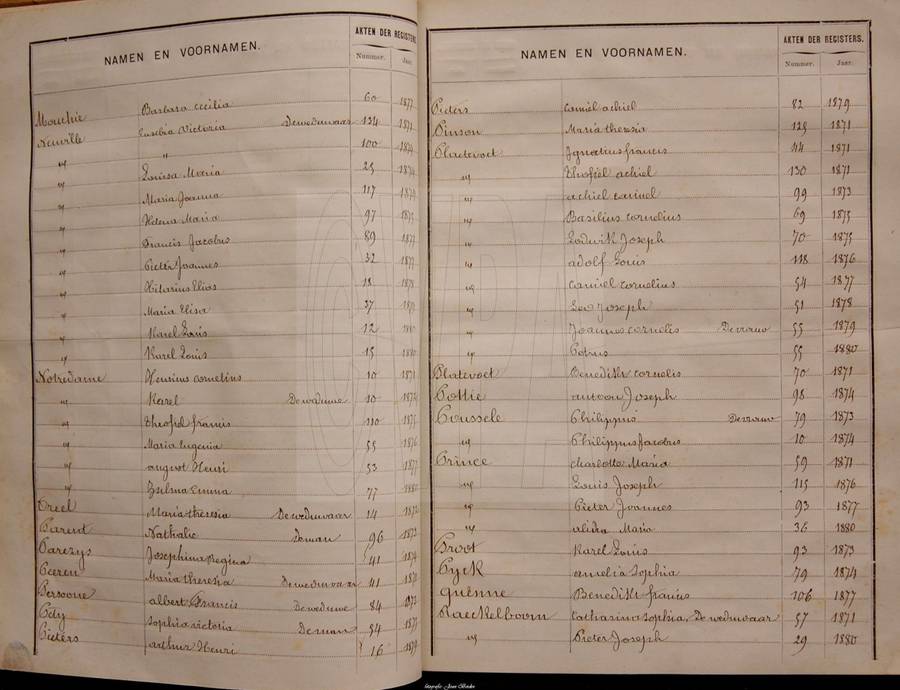 NAMEN EN VOORNAMEN. AKTEN DER REGISTERS
Nummer. Jaar.
Mouchie Barbara Cecilia 60 1877
Neuville Eusebia Victoria Deweduwaar 134 1871
" " 100 1874
" Louisa Maria 25 1874
" Maria Joanna 117 1874
" Helena Maria 97 1875
" Francis Jacobus 89 1877
" Pieter Joannes 32 1877
" Hilarius Elias 18 1878
" Maria Elisa 37 1879
" Karel Louis 12 1880
" Karel Louis 15 1880
Notredame Henricus Cornelius 10 1871
" Karel Deweduwe 10 1872
" Theofiel francis 110 1875
" Maria Eugenia 55 1876
" august Henri 53 1877
" Zulma Emma 77 1880
Oreel Maria theresia Deweduwaar 14 1872
Parent Nathalie Deman 96 1873
Parezys Josephina Regina 41 1874
Peeren Maria theresia Deweduwaar 41 1871
Persoone albert Francis Deweduwe 84 1873
Pety Sophia victoria Deman 54 1875
Pieters arthur Henri 16 1874
NAMEN EN VOORNAMEN. AKTEN DER REGISTERS.
Nummer. Jaar.
Pieters Camiel achiel 82 1879
Pinson Maria theresia 125 1871
Pladevoet Ignatius francis 44 1871
" theofiel achiel 130 1871
" achiel camiel 99 1873
" Basilius cornelius 69 1875
" Lodwik Joseph 70 1875
" adolf Louis 118 1876
" camiel cornelius 54 1877
" Leo Joseph 51 1878
" Joannes cornelis Devrouw 55 1879
" Petrus 55 1880
Platevoet Benedikt cornelis 70 1871
Pottie antoon Joseph 98 1874
Poussele Philippus Devrouw 79 1873
" Philippus Jacobus 10 1874
Prince charlotte Maria 59 1871
" Louis Joseph 115 1876
" Pieter Joannes 93 1877
" alida Maria 36 1880
Proot Karel Louis 93 1873
Pyck amelia Sophia 79 1874
Quenne Benedikt francis 106 1877
Raeckelboom Catharina Sophia, Deweduwaar 57 1871
" Pieter Joseph 29 1880